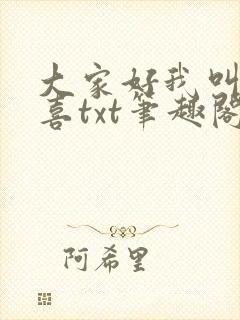 大家好我叫
喜txt笔趣阁
阿希里